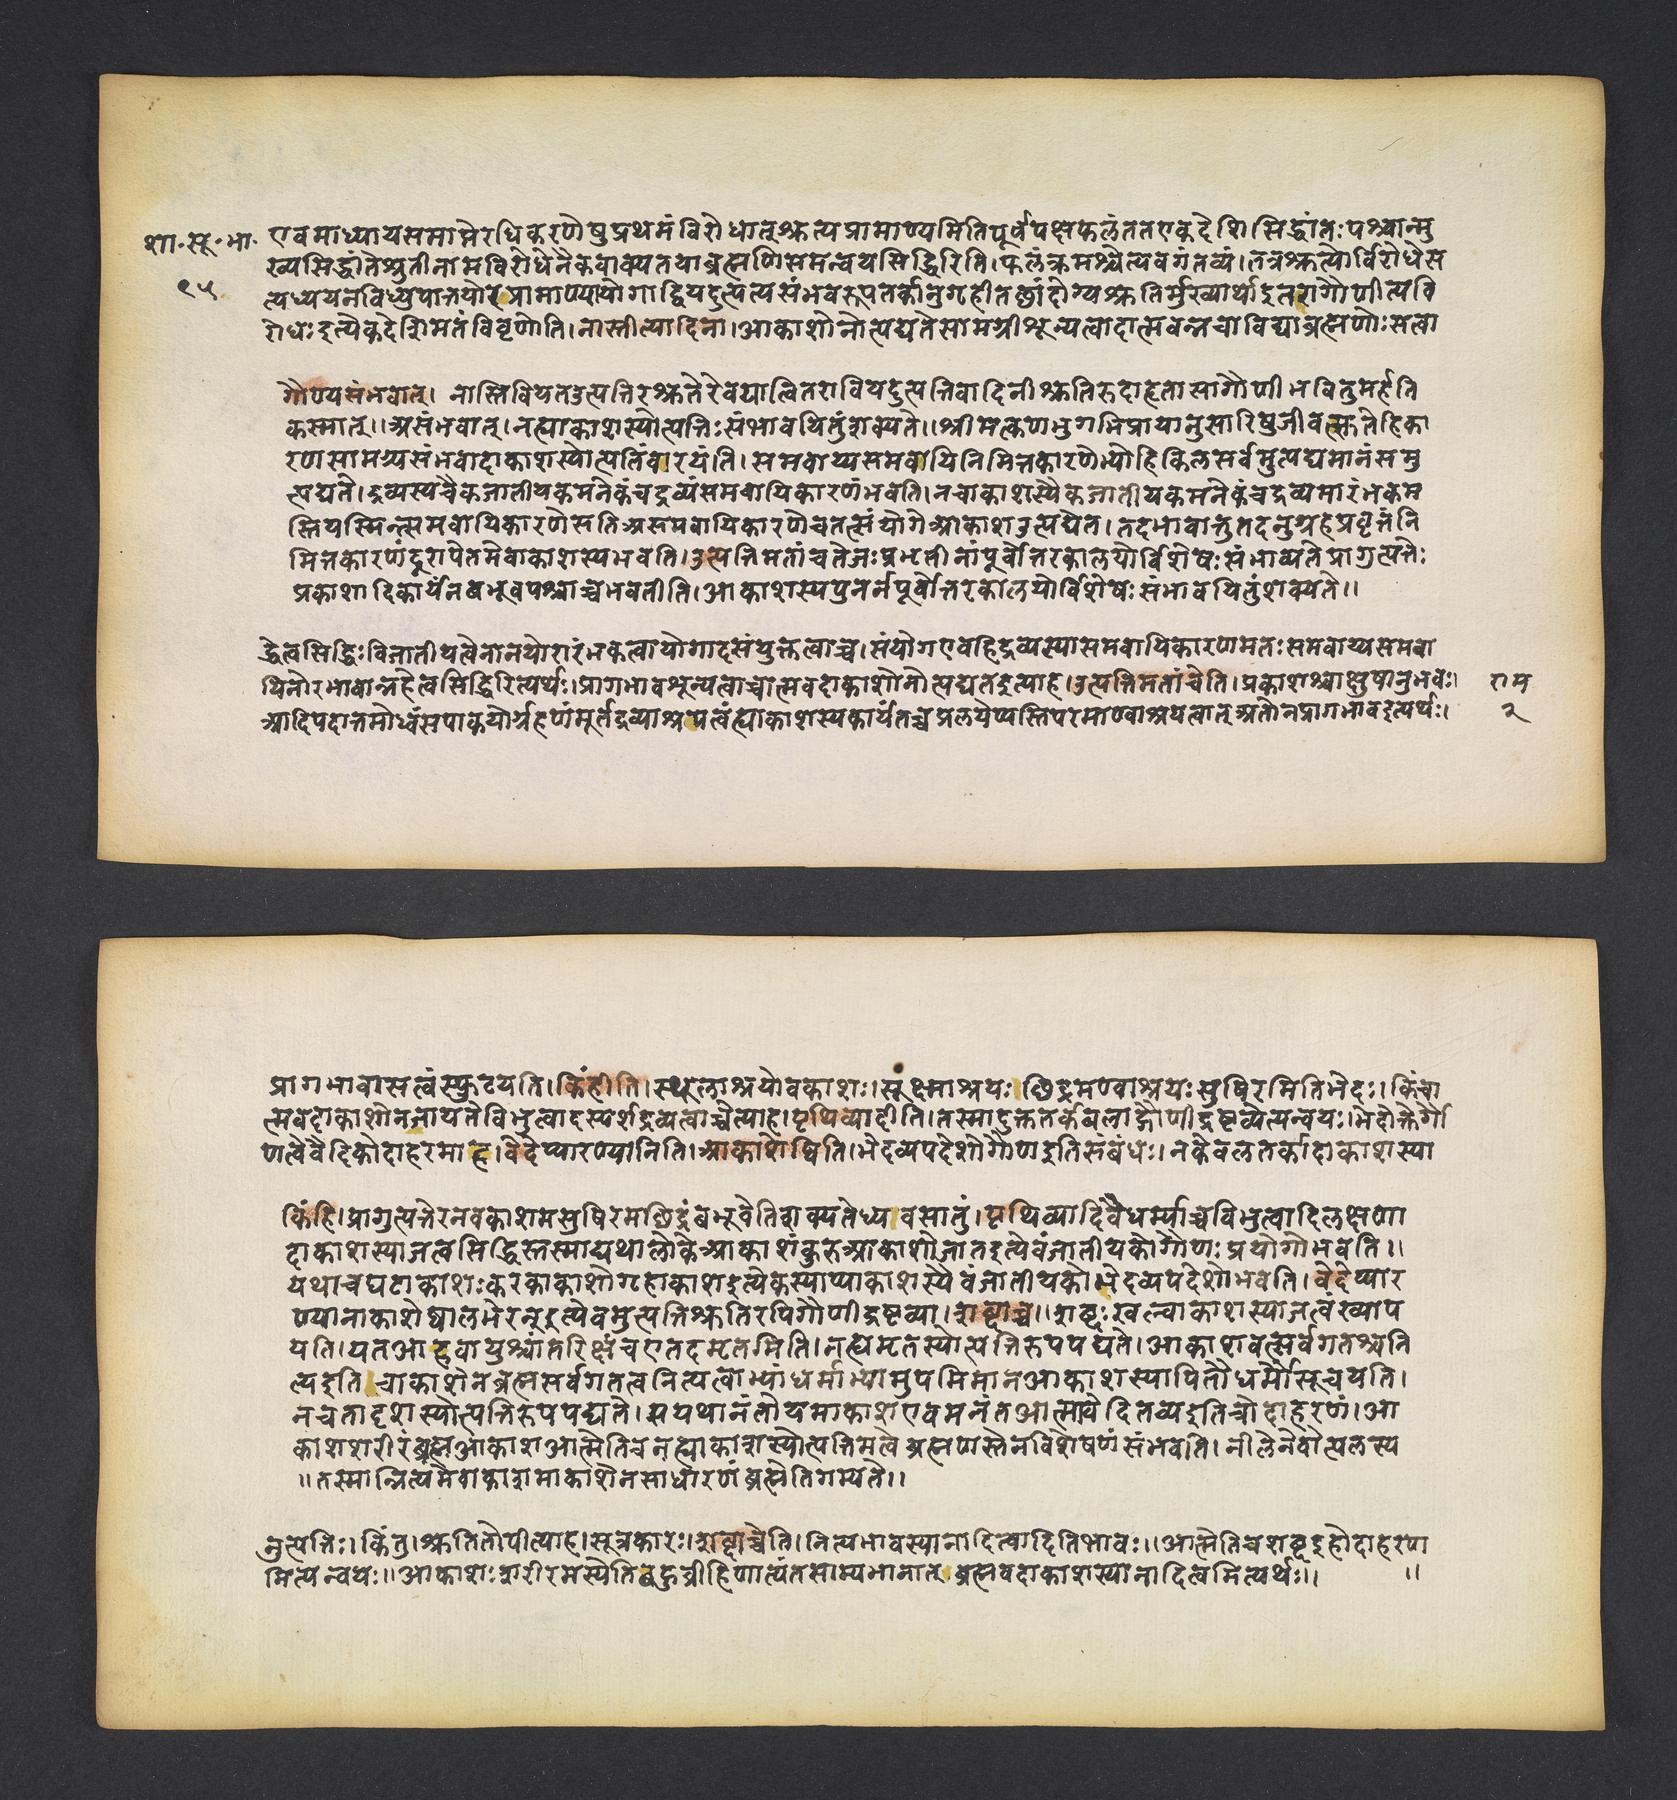 शा.सू.भा.
१५
एवमाध्यायसमाप्तेरधिकरणेषुप्रथमंविरोधात्श्रुत्यप्रामाण्यमितिपूर्वपक्षफलंततएकदेशिसिद्धांतःपश्चान्मु
ख्यसिद्धांतेश्रुतीनामविरोधेनैकवाक्यतयाब्रह्मणिसमन्वयसिद्धिरिति।फलंक्रमश्चेत्यवगंतव्यं।तत्रश्रुत्योर्विरोधेस
त्यध्ययनविध्युपात्तयोरप्रामाण्यायोगाद्वियदुत्पत्यसंभवरूपतर्कानुगृहीतछांदोग्यश्रुतिर्मुख्यार्थाइतरागौणीत्यवि
रोधःइत्येकदेशिमतंविवृणोति।नास्तीत्यादिना।आकाशोनोत्पद्यतेसामग्रीशून्यत्वादात्मवन्नचाविद्याब्रह्मणोःसत्वा
गौण्यसंभवात्। नास्तिवियतउत्पत्तिरश्रुतेरेवयात्वितरावियदुत्पत्तिवादिनीश्रुतिरुदाहृतासागौणीभवितुमर्हति
कस्मात्।।असंभवात्।नह्याकाशस्योत्पत्तिःसंभावयितुंशक्यते।।श्रीमत्कणभुगभिप्रायानुसारिषुजीवत्सुतेहिका
रणसामग्र्यसंभवादाकाशस्योत्पत्तिंवारयंति।समवाय्यसमवायिनिमित्तकारणेभ्योहिकिलसर्वमुत्पद्यमानंसमु
त्पद्यते।द्रव्यस्यचैकजातीयकमनेकंचद्रव्यंसमवायिकारणंभवति।नचाकाशस्यैकजातीयकमनेकंचद्रव्यमारंभकम
स्तियस्मिन्त्समवायिकारणेसतिअसमवायिकारणेचतत्संयोगेआकाशउत्पद्येत।तदभावात्तुतदनुग्रहप्रवृत्तंनि
मित्तकारणंदूरापेतमेवाकाशस्यभवति।उत्पत्तिमतांचतेजःप्रभृतीनांपूर्वोत्तरकालयोर्विशेषःसंभाव्यतेप्रागुत्पत्तेः
प्रकाशादिकार्यंनबभूवपश्चाच्चभवतीति।आकाशस्यपुनर्नपूर्वोत्तरकालयोर्विशेषःसंभावयितुंशक्यते।।
द्धेत्वसिद्धिःविजातीयत्वेनानयोरारंभकत्वायोगादसंयुक्तत्वाच्च।संयोगएवहिद्रव्यस्यासमवायिकारणमतःसमवाय्यसमवा
यिनोरभावान्नहेत्वसिद्धिरित्यर्थः।प्रागभावशून्यत्वाच्चात्मवदाकाशोनोत्पद्यतइत्याह।उत्पत्तिमतांचेति।प्रकाशश्चाक्षुषानुभवः।
राम
२
आदिपदात्तमोध्वंसपाकयोर्ग्रहणंमूर्तद्रव्याश्रयत्वंह्याकाशस्यकार्यंतच्चप्रलयेप्यस्तिपरमाण्वाश्रयत्वात्अतोनप्रागभावइत्यर्थः।
प्रागभावासत्वंस्फुटयति।किंहीति।स्थूलाश्रयोवकाशः।सूक्ष्माश्रयः।छिद्रमण्वाश्रयःसुषिरमितिभेदः।किंचा
त्मवदाकाशोनजायतेविभुत्वादस्पर्शद्रव्यत्वाच्चेत्याह।पृथिव्यादीति।तस्मादुक्ततर्कबलाद्गौणीद्रष्टव्येत्यन्वयः।भेदोक्तेर्गौ
णत्वेवैदिकोदाहरमाह।वेदेप्यारण्यानिति।आकाशेष्विति।भेदव्यपदेशोगौणइतिसंबंधः।नकेवलतर्कादाकाशस्या
किंहि।प्रागुत्पत्तेरनवकाशमसुषिरमछिद्रंबभूवेतिशक्यतेध्यवसातुं।पृथिव्यादिवैधर्म्याच्चविभुत्वादिलक्षणा
दाकाशस्याजत्वसिद्धिस्तस्माद्यथालोकेआकाशंकुरुआकाशोजातइत्येवंजातीयकोगौणःप्रयोगोभवति।।
यथाचघटाकाशःकरकाकाशोगृहाकाशइत्येकस्याप्याकाशस्यैवंजातीयकोभेदव्यपदेशोभवति।वेदेप्यार
ण्यानाकाशेष्वालभेरन्इत्येवमुत्पत्तिश्रुतिरपिगौणीद्रष्टव्या।शब्दाच्च।।शब्दःखल्वाकाशस्याजत्वंख्याप
यति।यतआहवायुश्चांतरिक्षंचएतदमृतमिति।नह्यमृतस्योत्पत्तिरुपपद्यते।आकाशवत्सर्वगतश्चनि
त्यइति।चाकाशेनब्रह्मसर्वगतत्वनित्यत्वाभ्यांधर्माभ्यामुपमिमानआकाशस्यापितौधर्मौसूचयति।
नचतादृशस्योत्पत्तिरुपपद्यते।सयथानंतोयमाकाशएवमनंतआत्मावेदितव्यइतिचोदाहरणं।आ
काशशरीरंब्रह्मआकाशआत्मेतिचनह्याकाशस्योत्पत्तिमत्वेब्रह्मणस्तेनविशेषणंसंभवति।नीलेनेवोत्पलस्य
॥तस्मान्नित्यमेवाकाशमाकाशेनसाधारणंब्रह्मेतिगम्यते।।
नुत्पत्तिः।किंतु।श्रुतितोपीत्याह।सूत्रकारः।शब्दाच्चेति।नित्यभावस्यानादित्वादितिभावः।।आत्मेतिचशब्दइहोदाहरण
मित्यन्वयः॥आकाशःशरीरमस्येतिबहुव्रीहिणात्यंतसाम्यभानात्ब्रह्मवदाकाशस्यानादित्वमित्यर्थः।।। ॥